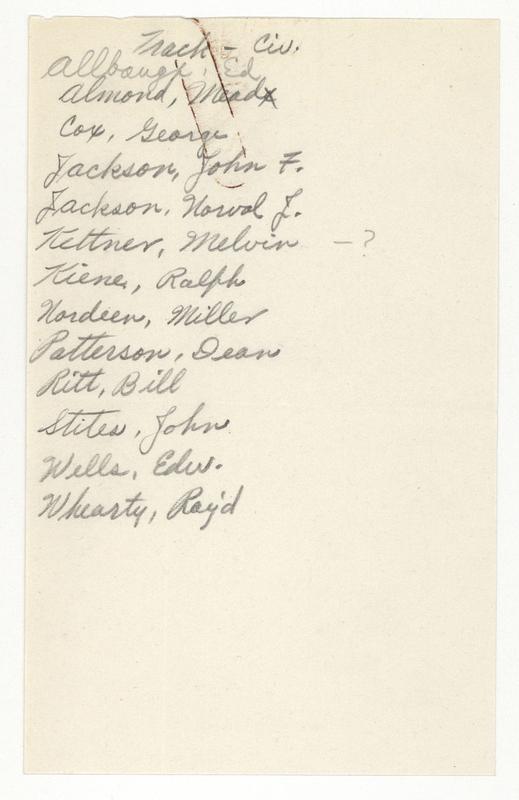 Track - Civ.
Allbaugh, Ed
Almond, Mead
Cox, George
Jackson, John F.
Jackson, Norval J.
Kettner, Melvin - ?
Kiene, Ralph
Nordeen, Miller
Patterson, Dean
Ritt, Bill
Stites, John
Wells, Edw.
Whearty, Ray'd